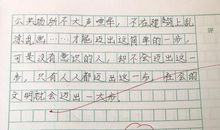 公共场所不大声喧哗,不在建筑上乱
涂乱画……才能迈出这简单的一步,
可是没有意识的人,却不会迈出这一
步,只有人人都迈出这一步,社会的
文明就会迈出一大步。